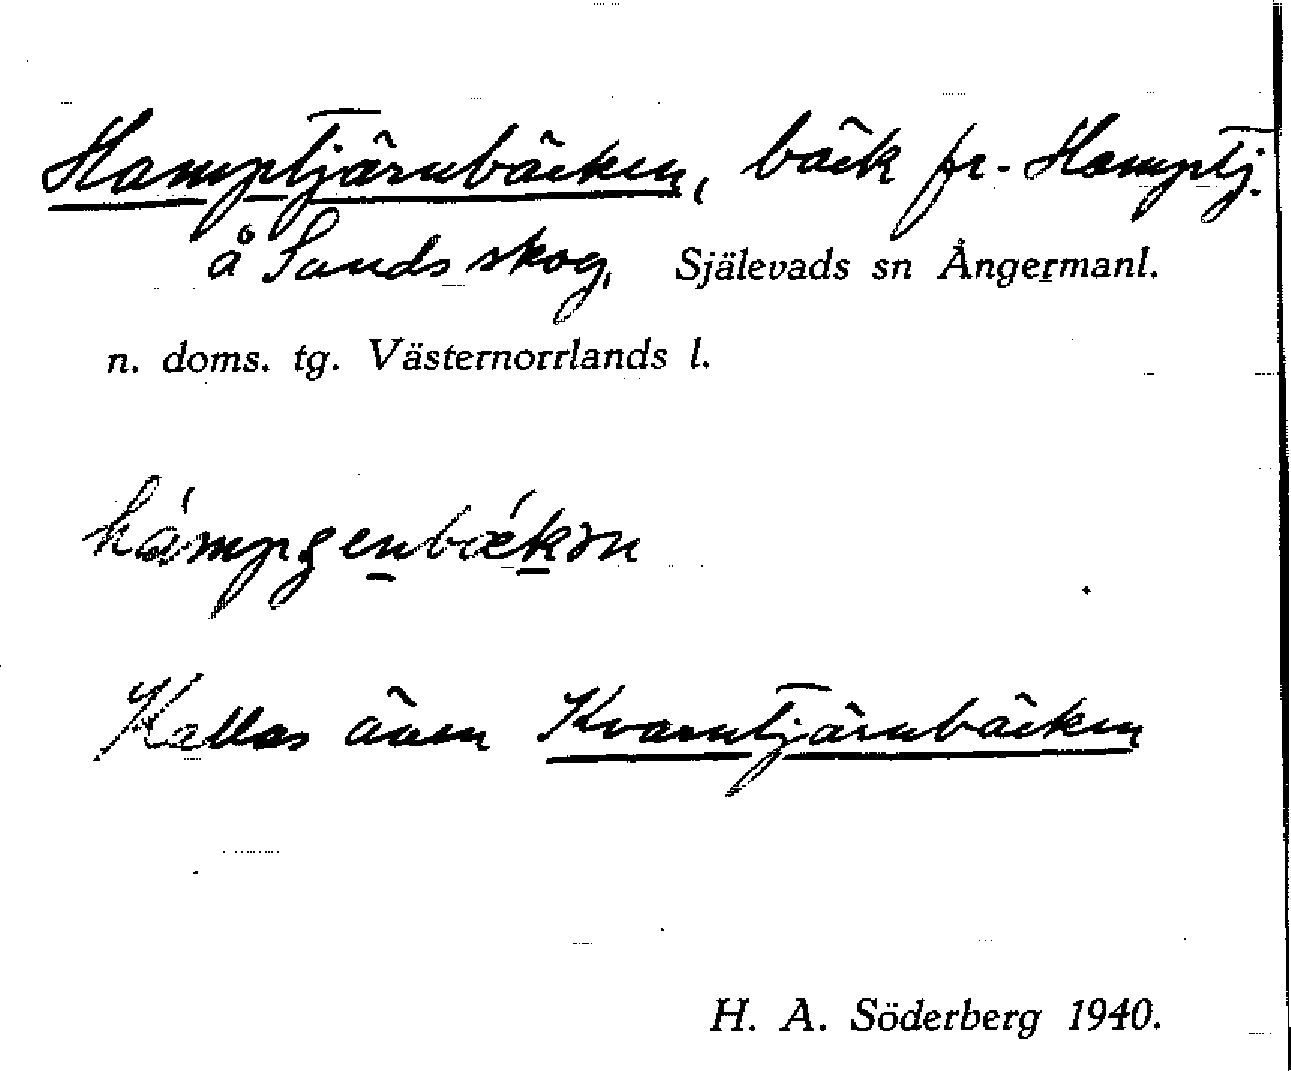 Hamptjärnbäcken, bäck fr. Hamptj.
å Sands skog, Själevads sn Ångermanl.
n. doms. tg. Västernorrlands l.
Kallas även Kvarntjärnbäcken
H. A. Söderberg 1940.